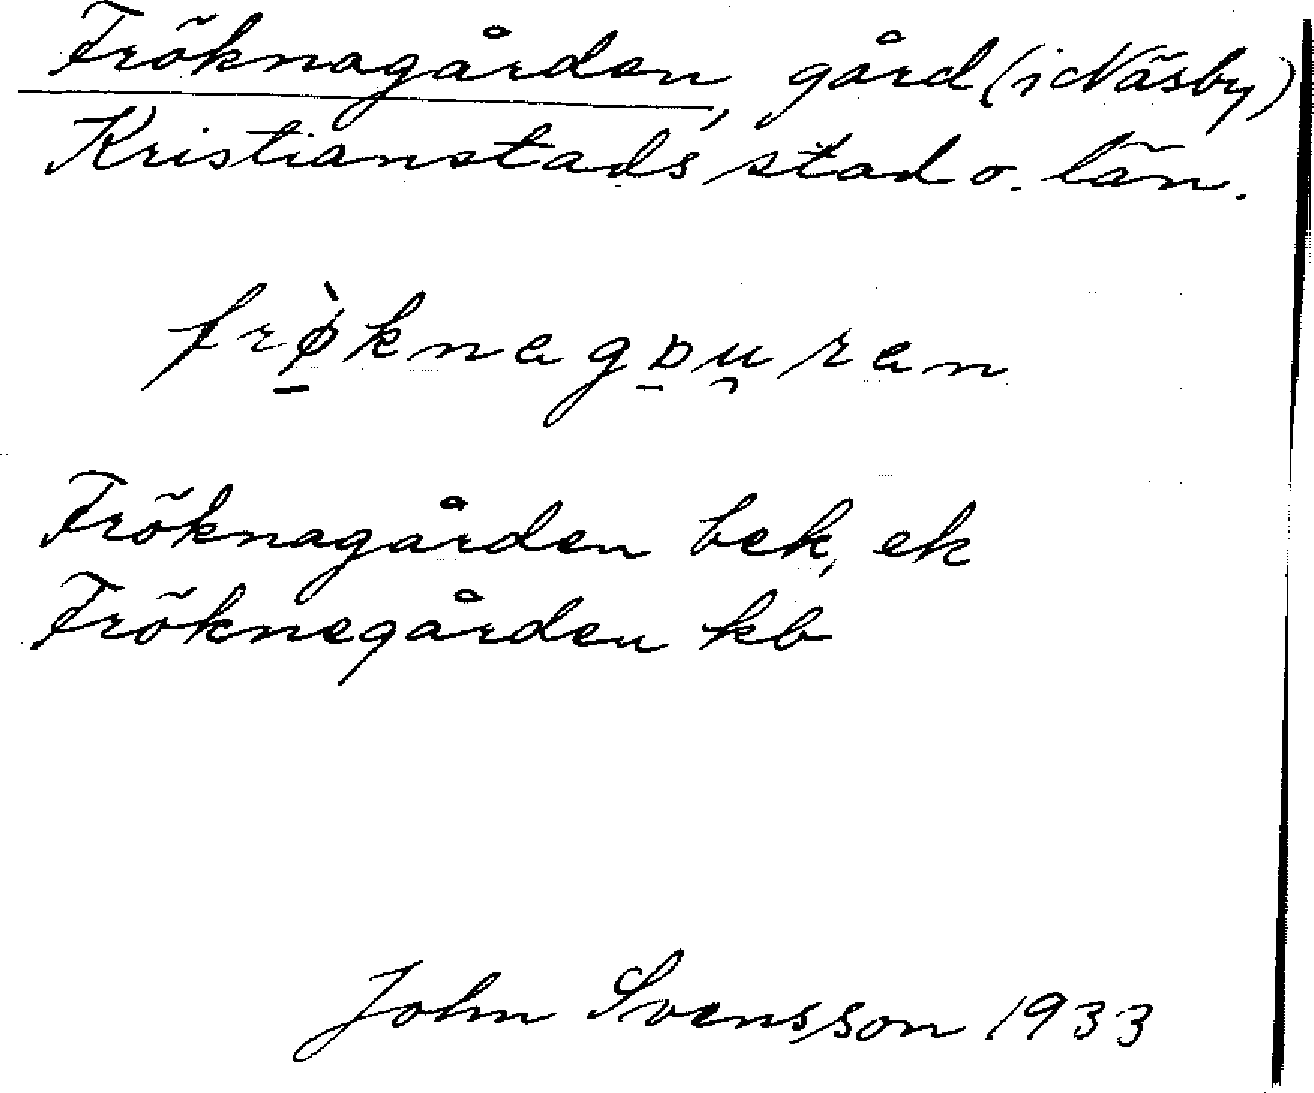 Fröknagården, gård (i Näsby)
Kristianstads stad o. län.
frø̀knagɒu̯ran
Fröknagården bek, ek
Fröknegården kb
John Svensson 1933